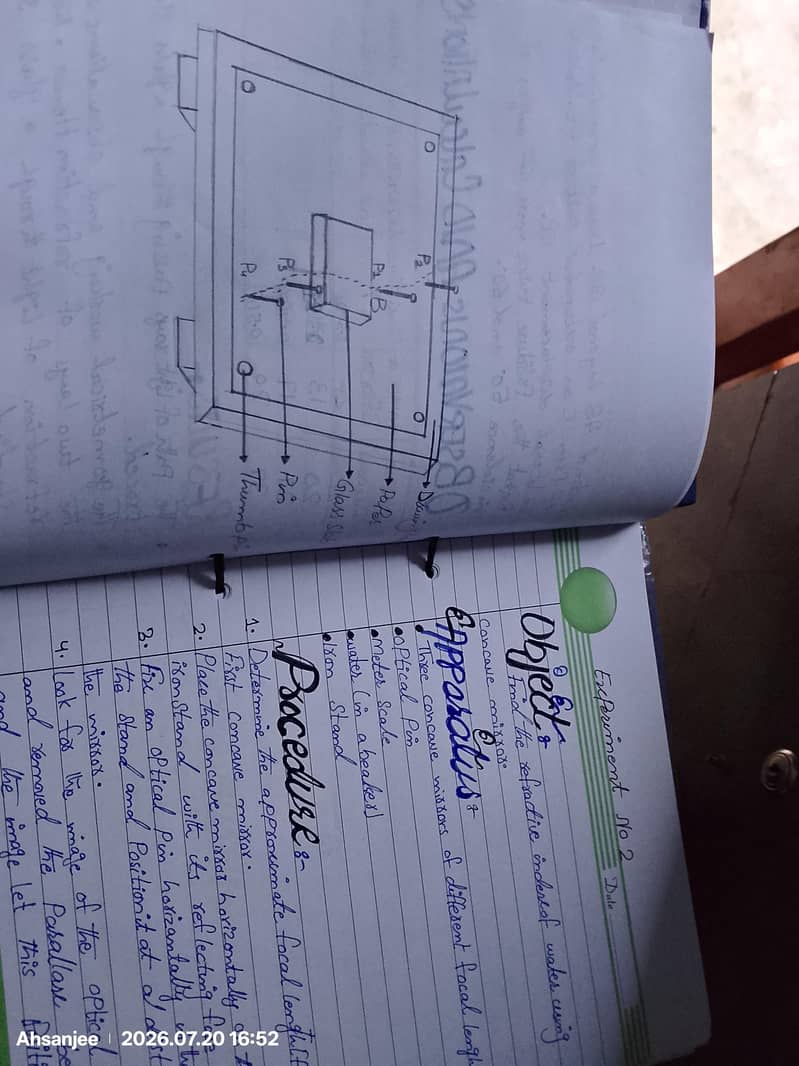 P2
P1
B
P3
P4
Paper
Glass
Pin
Thumb
Experiment No 2
Date
Object:-
Find the refractive index of water using
concave mirror.
Apparatus:-
• Three concave mirrors of different focal lengh
• optical Pin
• Meter Scale
• water (in a beaker)
• iron Stand
Procedure:-
1. Determine the approximate focal length
First concave mirror.
2. Place the concave mirror horizontally
iron stand with its reflecting face
3. Fix an optical pin horizontally
the stand and Position it at a dist
the mirror.
4. Look for the image of the optical
and removed the Parallax be
and the image let this
Ahsanjee | 2026.07.20 16:52